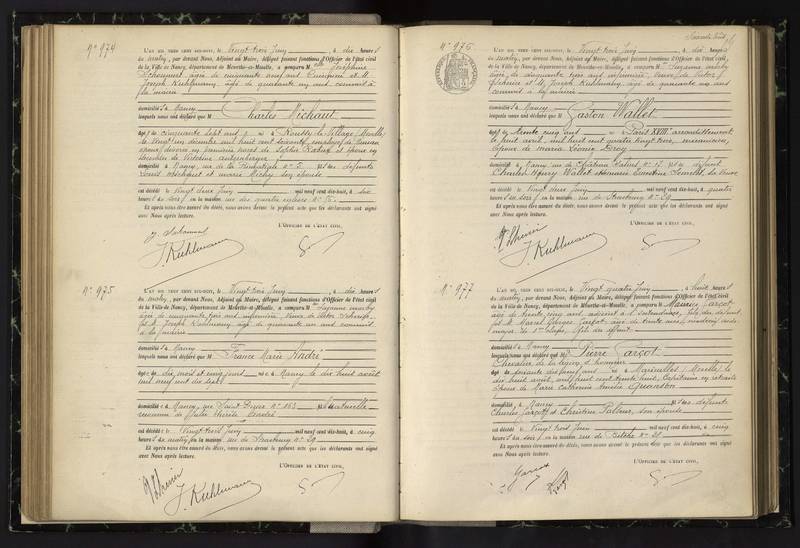 N° 974
L'AN MIL NEUF CENT DIX-HUIT, le Vingt trois Juin, à dix heures
du matin, par devant Nous, Adjoint au Maire, délégué faisant fonctions d'Officier de l'état civil
de la Ville de Nancy, département de Meurthe-et-Moselle, a comparu M Joséphine
âgée de cinquante neuf ans et M.
Joseph Kuhlmann, âgé de quarante un ans commis à
la mairie
domiciliés à Nancy
lesquels nous ont déclaré que M Charles Michaut
âgé de cinquante sept ans, né à Roussy-le-Village (Moselle)
le vingt un décembre mil huit cent soixante, employé de
époux divorcé en premières noces de Sophie et époux en
secondes de Victorine
domicilié à Nancy, rue de la N° 2, fils des défunts
Louis Michaut et Marie Michy son épouse
est décédé le Vingt deux Juin mil neuf cent dix-huit, à six
heures du soir, en la maison rue des quatre églises N°
Et après nous être assuré du décès, nous avons dressé le présent acte que les déclarants ont signé
avec Nous après lecture.
L'OFFICIER DE L'ÉTAT CIVIL,
J. Kuhlmann
N° 975
L'AN MIL NEUF CENT DIX-HUIT, le Vingt trois Juin, à dix heures
du matin, par devant Nous, Adjoint au Maire, délégué faisant fonctions d'Officier de l'état civil
de la Ville de Nancy, département de Meurthe-et-Moselle, a comparu Mme Suzanne
âgée de cinquante trois ans infirmière, veuve de Victor
et M. Joseph Kuhlmann, âgé de quarante un ans commis
à la mairie
domiciliés à Nancy
lesquels nous ont déclaré que M France Marie André
âgée de dix mois et cinq jours née à Nancy le dix huit août
mil neuf cent dix sept
domiciliée à Nancy, rue Saint Dizier N° 163 fille naturelle
de Julie Thérèse André
est décédée le Vingt trois Juin mil neuf cent dix-huit, à cinq
heures du matin, en la maison rue de Strasbourg N° 29
Et après nous être assuré du décès, nous avons dressé le présent acte que les déclarants ont signé
avec Nous après lecture.
L'OFFICIER DE L'ÉTAT CIVIL,
J. Kuhlmann
N° 976
L'AN MIL NEUF CENT DIX-HUIT, le Vingt trois Juin, à dix heures
du matin, par devant Nous, Adjoint au Maire, délégué faisant fonctions d'Officier de l'état civil
de la Ville de Nancy, département de Meurthe-et-Moselle, a comparu Mme Suzanne
âgée de cinquante trois ans infirmière, veuve de Victor
et M. Joseph Kuhlmann, âgé de quarante un ans
commis à la mairie
domiciliés à Nancy
lesquels nous ont déclaré que M Gaston Wallet
âgé de trente cinq ans né à Paris XVIII° arrondissement
le huit avril mil huit cent quatre vingt trois, mécanicien,
époux de Léonie Droy
domicilié à Nancy, rue de Château Salins N° 17, fils de défunt
Charles Henry Wallet et Ernestine sa veuve
est décédé le Vingt deux Juin mil neuf cent dix-huit, à quatre
heures du soir, en la maison rue de Strasbourg N° 29
Et après nous être assuré du décès, nous avons dressé le présent acte que les déclarants ont signé
avec Nous après lecture.
L'OFFICIER DE L'ÉTAT CIVIL,
J. Kuhlmann
N° 977
L'AN MIL NEUF CENT DIX-HUIT, le Vingt quatre Juin, à huit heures
du matin, par devant Nous, Adjoint au Maire, délégué faisant fonctions d'Officier de l'état civil
de la Ville de Nancy, département de Meurthe-et-Moselle, a comparu M Maurice Garçot
âgé de trente cinq ans, adjoint à l'intendance, fils du défunt
et M. Marcel Georges Garçot, âgé de trente ans, médecin aide
major de 1re classe, fils du défunt
domiciliés à Nancy
lesquels nous ont déclaré que M Pierre Garçot
Chevalier de la légion d'honneur
âgé de soixante dix neuf ans né à Marieulles (Moselle) le
dix huit août mil huit cent trente huit, Capitaine en retraite
époux de Marie Catherine Amélie
domicilié à Nancy fils des défunts
Charles Garçot et Christine son épouse
est décédé le Vingt trois Juin mil neuf cent dix-huit, à cinq
heures du soir, en la maison rue de N° 21
Et après nous être assuré du décès, nous avons dressé le présent acte que les déclarants ont signé
avec Nous après lecture.
L'OFFICIER DE L'ÉTAT CIVIL,